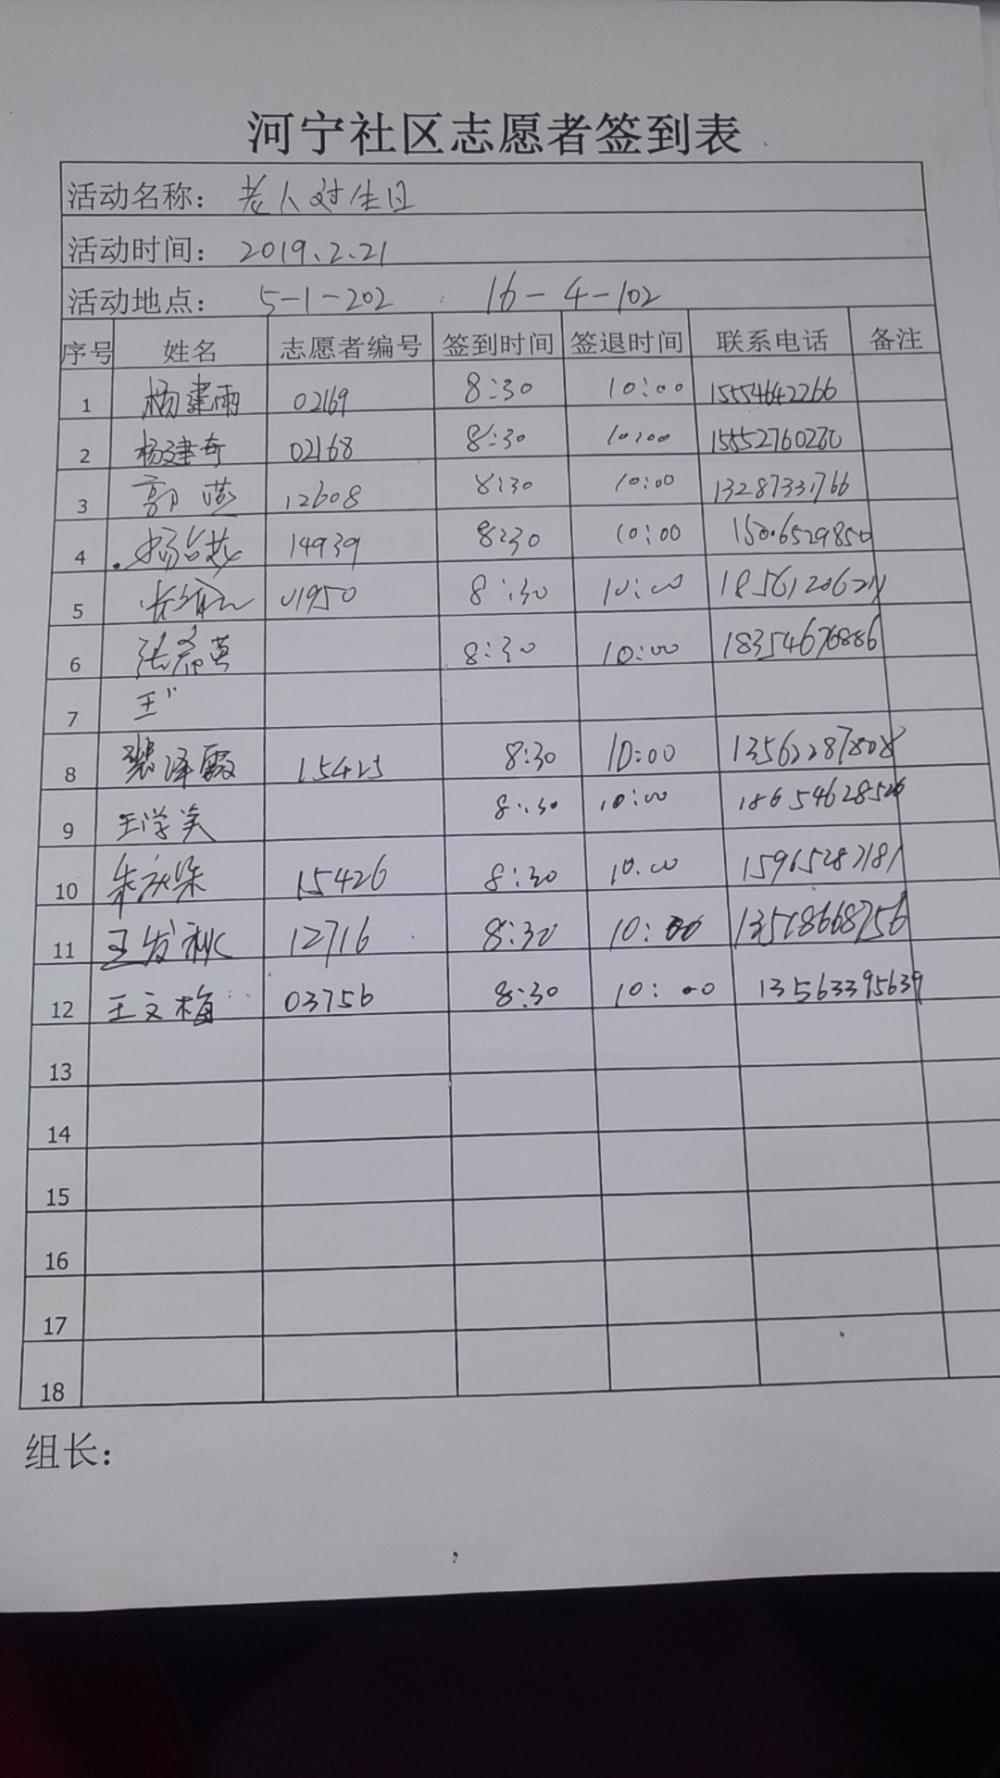 河宁社区志愿者签到表
活动名称: 老人过生日
活动时间: 2019.2.21
活动地点: 5-1-202 16-4-102
序号 姓名 志愿者编号 签到时间 签退时间 联系电话 备注
1 杨建雨 02169 8:30 10:00 15554642266
2 杨建奇 02168 8:30 10:00 15552760280
3 郭燕 12608 8:30 10:00 13287331766
4 14939 8:30 10:00 1506529850
5 01950 8:30 10:00
6 张希英 8:30 10:00 18354676886
7 王
8 裴泽霞 15425 8:30 10:00 13562287808
9 王学美 8:30 10:00 18654628526
10 朱庆朵 15426 8:30 10.00 15965287181
11 王发秋 12716 8:30 10:00 13518668756
12 王文梅 03756 8:30 10:00 13563395639
13
14
15
16
17
18
组长: